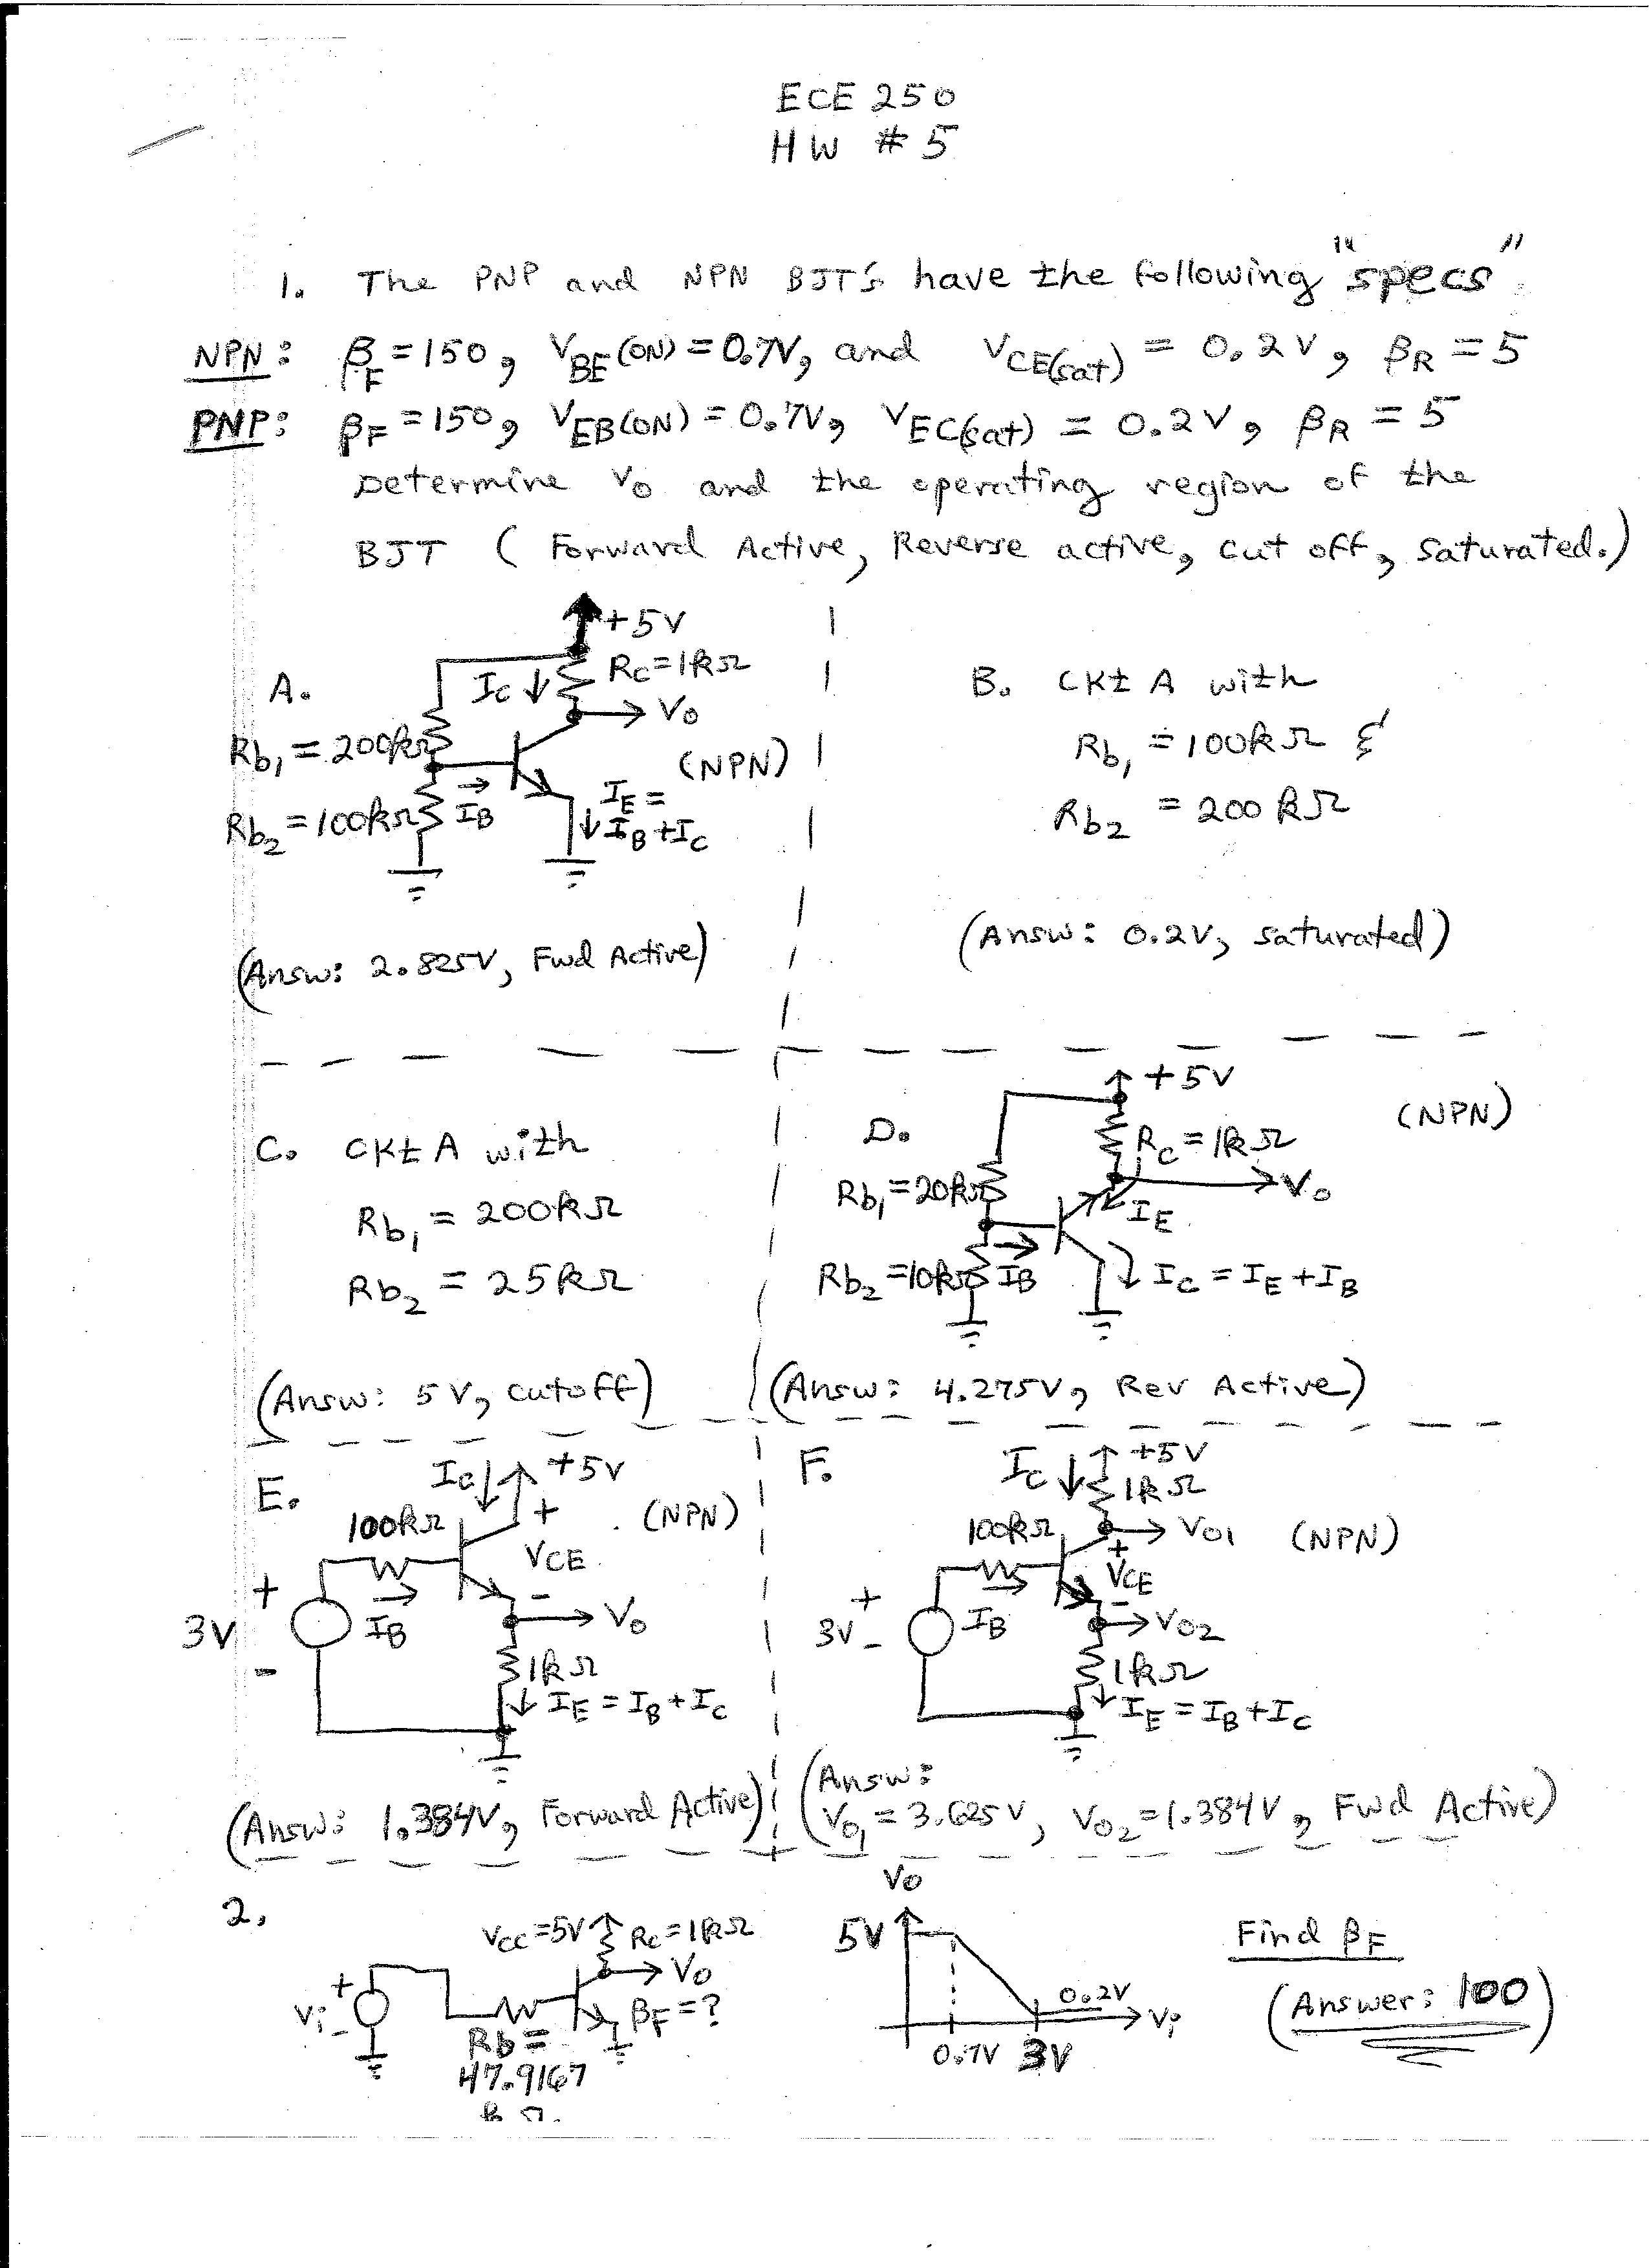 ECE 250
HW # 5
1. The PNP and NPN BJT's have the following "specs"
NPN: βF = 150, VBE(ON) = 0.7V, and VCE(sat) = 0.2V, βR = 5
PNP: βF = 150, VEB(ON) = 0.7V, VEC(sat) = 0.2V, βR = 5
Determine Vo and the operating region of the
BJT (Forward Active, Reverse active, cut off, saturated.)
A.
+5V
Rc = 1kΩ
Ic ↓
Vo
Rb1 = 200kΩ
(NPN)
Rb2 = 100kΩ
IB
IE =
↓ IB + Ic
(Answ: 2.825V, Fwd Active)
B. CKt A with
Rb1 = 100kΩ &
Rb2 = 200kΩ
(Answ: 0.2V, saturated)
C. CKt A with
Rb1 = 200kΩ
Rb2 = 25kΩ
(Answ: 5V, cutoff)
D.
+5V
(NPN)
Rc = 1kΩ
Rb1 = 20kΩ
Vo
IE
Rb2 = 10kΩ
IB
Ic = IE + IB
(Answ: 4.275V, Rev Active)
E.
Ic ↓
+5V
100kΩ
+
(NPN)
VCE
-
+
3V
-
IB
Vo
1kΩ
↓ IE = IB + Ic
(Answ: 1.384V, Forward Active)
F.
Ic ↓
+5V
1kΩ
100kΩ
Vo1
(NPN)
+
VCE
-
+
3V
-
IB
Vo2
1kΩ
↓ IE = IB + Ic
(Answ:
Vo1 = 3.625V, Vo2 = 1.384V, Fwd Active)
2.
Vcc = 5V
Rc = 1kΩ
Vo
+
Vi
-
βF = ?
Rb =
47.9167
kΩ
Vo
5V
0.2V
Vi
0.7V 3V
Find βF
(Answer: 100)